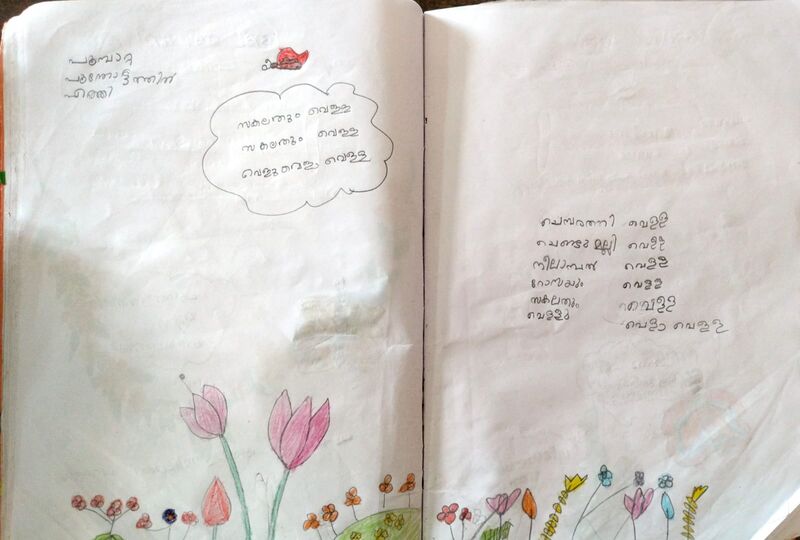 പൂമ്പാറ്റ
പൂന്തോട്ടത്തിൽ
എത്തി
സകലതും വെള്ള
സകലതും വെള്ള
വെളുവെളാ വെള്ള
ചെമ്പരത്തി വെള്ള
ചെണ്ടുമല്ലി വെള്ള
നീലാമ്പൽ വെള്ള
റോസയും വെള്ള
സകലതും വെള്ള
വെള്ളു വെളാ വെള്ള